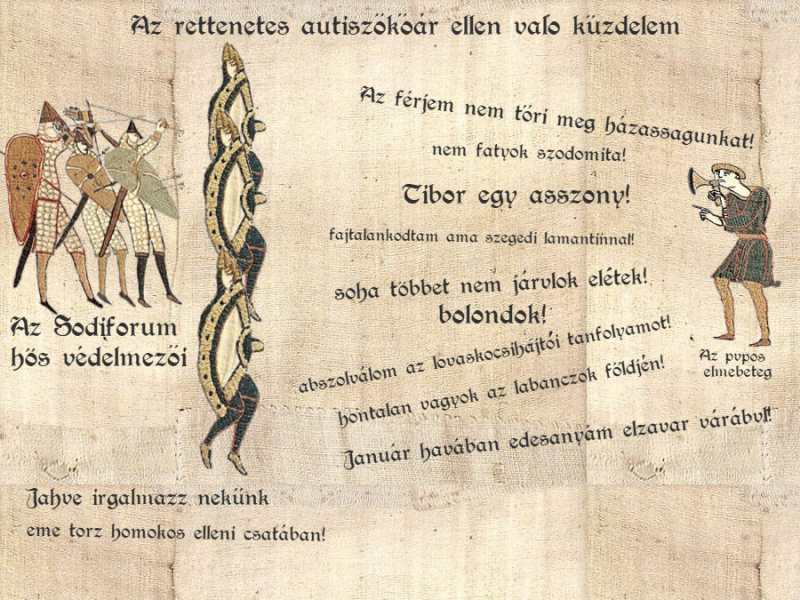 Az rettenetes autiszököár ellen való küzdelem
Az férjem nem töri meg házassagunkat!
nem fatyok szodomita!
Tibor egy asszony!
fajtalankodtam ama szegedi lamantinnal!
soha többet nem járvlok elétek!
bolondok!
abszolválom az lovaskocsihajtói tanfolyamot!
hontalan vagyok az labanczok földjén!
Január havában edesanyám elzavar várábvl!
Az Sodiforum
hös védelmezöi
Az pvpos
elmebeteg
Jahve irgalmazz nekünk
eme torz homokos elleni csatában!